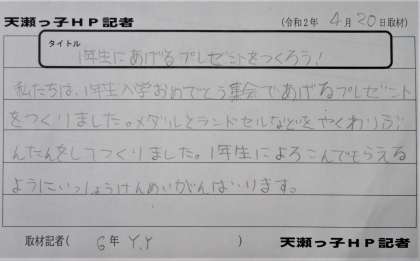 天瀬っ子HP記者
(令和2年 4月20日取材)
タイトル
1年生にあげるプレゼントをつくろう!
私たちは、1年生入学おめでとう集会であげるプレゼント
をつくりました。メダルとランドセルなどをやくわりぶ
んたんをしてつくりました。1年生によろこんでもらえる
ようにいっしょうけんめいがんばります。
取材記者( 6年 Y.Y )
天瀬っ子HP記者